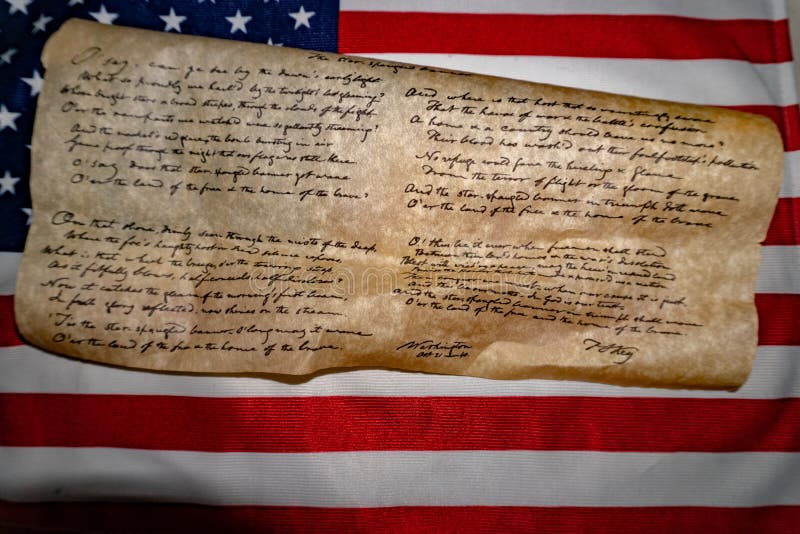 The Star Spangled Banner
O say, can ye see by the dawn's early light
What so proudly we hail'd by the twilight's last gleaming?
Whose bright stars & broad stripes, through the clouds of the fight
O'er the ramparts we watched were so gallantly streaming?
And the rocket's red glare, the bomb bursting in air
Gave proof through the night that our flag was still there
O! say, does that star spangled banner yet wave
O'er the land of the free & the home of the brave?
On that shore, dimly seen through the mists of the deep,
Where the foe's haughty host in dread silence reposes,
What is that which the breeze, o'er the towering steep
As it fitfully blows, half conceals, half discloses?
Now it catches the gleam of the morning's first beam,
In full glory reflected, now shines on the stream
'Tis the star-spangled banner, O! long may it wave
O'er the land of the free & the home of the brave.
And where is that host that so vauntingly swore
That the havoc of war & the battle's confusion
A home & a country should leave us no more?
Their blood has wash'd out their foul footstep's pollution
No refuge could save the hireling & slave
From the terror of flight or the gloom of the grave
And the star-spangled banner in triumph doth wave
O'er the land of the free & the home of the brave
O! thus be it ever when freemen shall stand
Between their lov'd homes & the war's desolation
Blest with the heav'n rescued land
when our cause it is just
And the star-spangled banner in triumph shall wave
O'er the land of the free and the home of the brave
Washington
Oct 21
F S Key
dreamstime